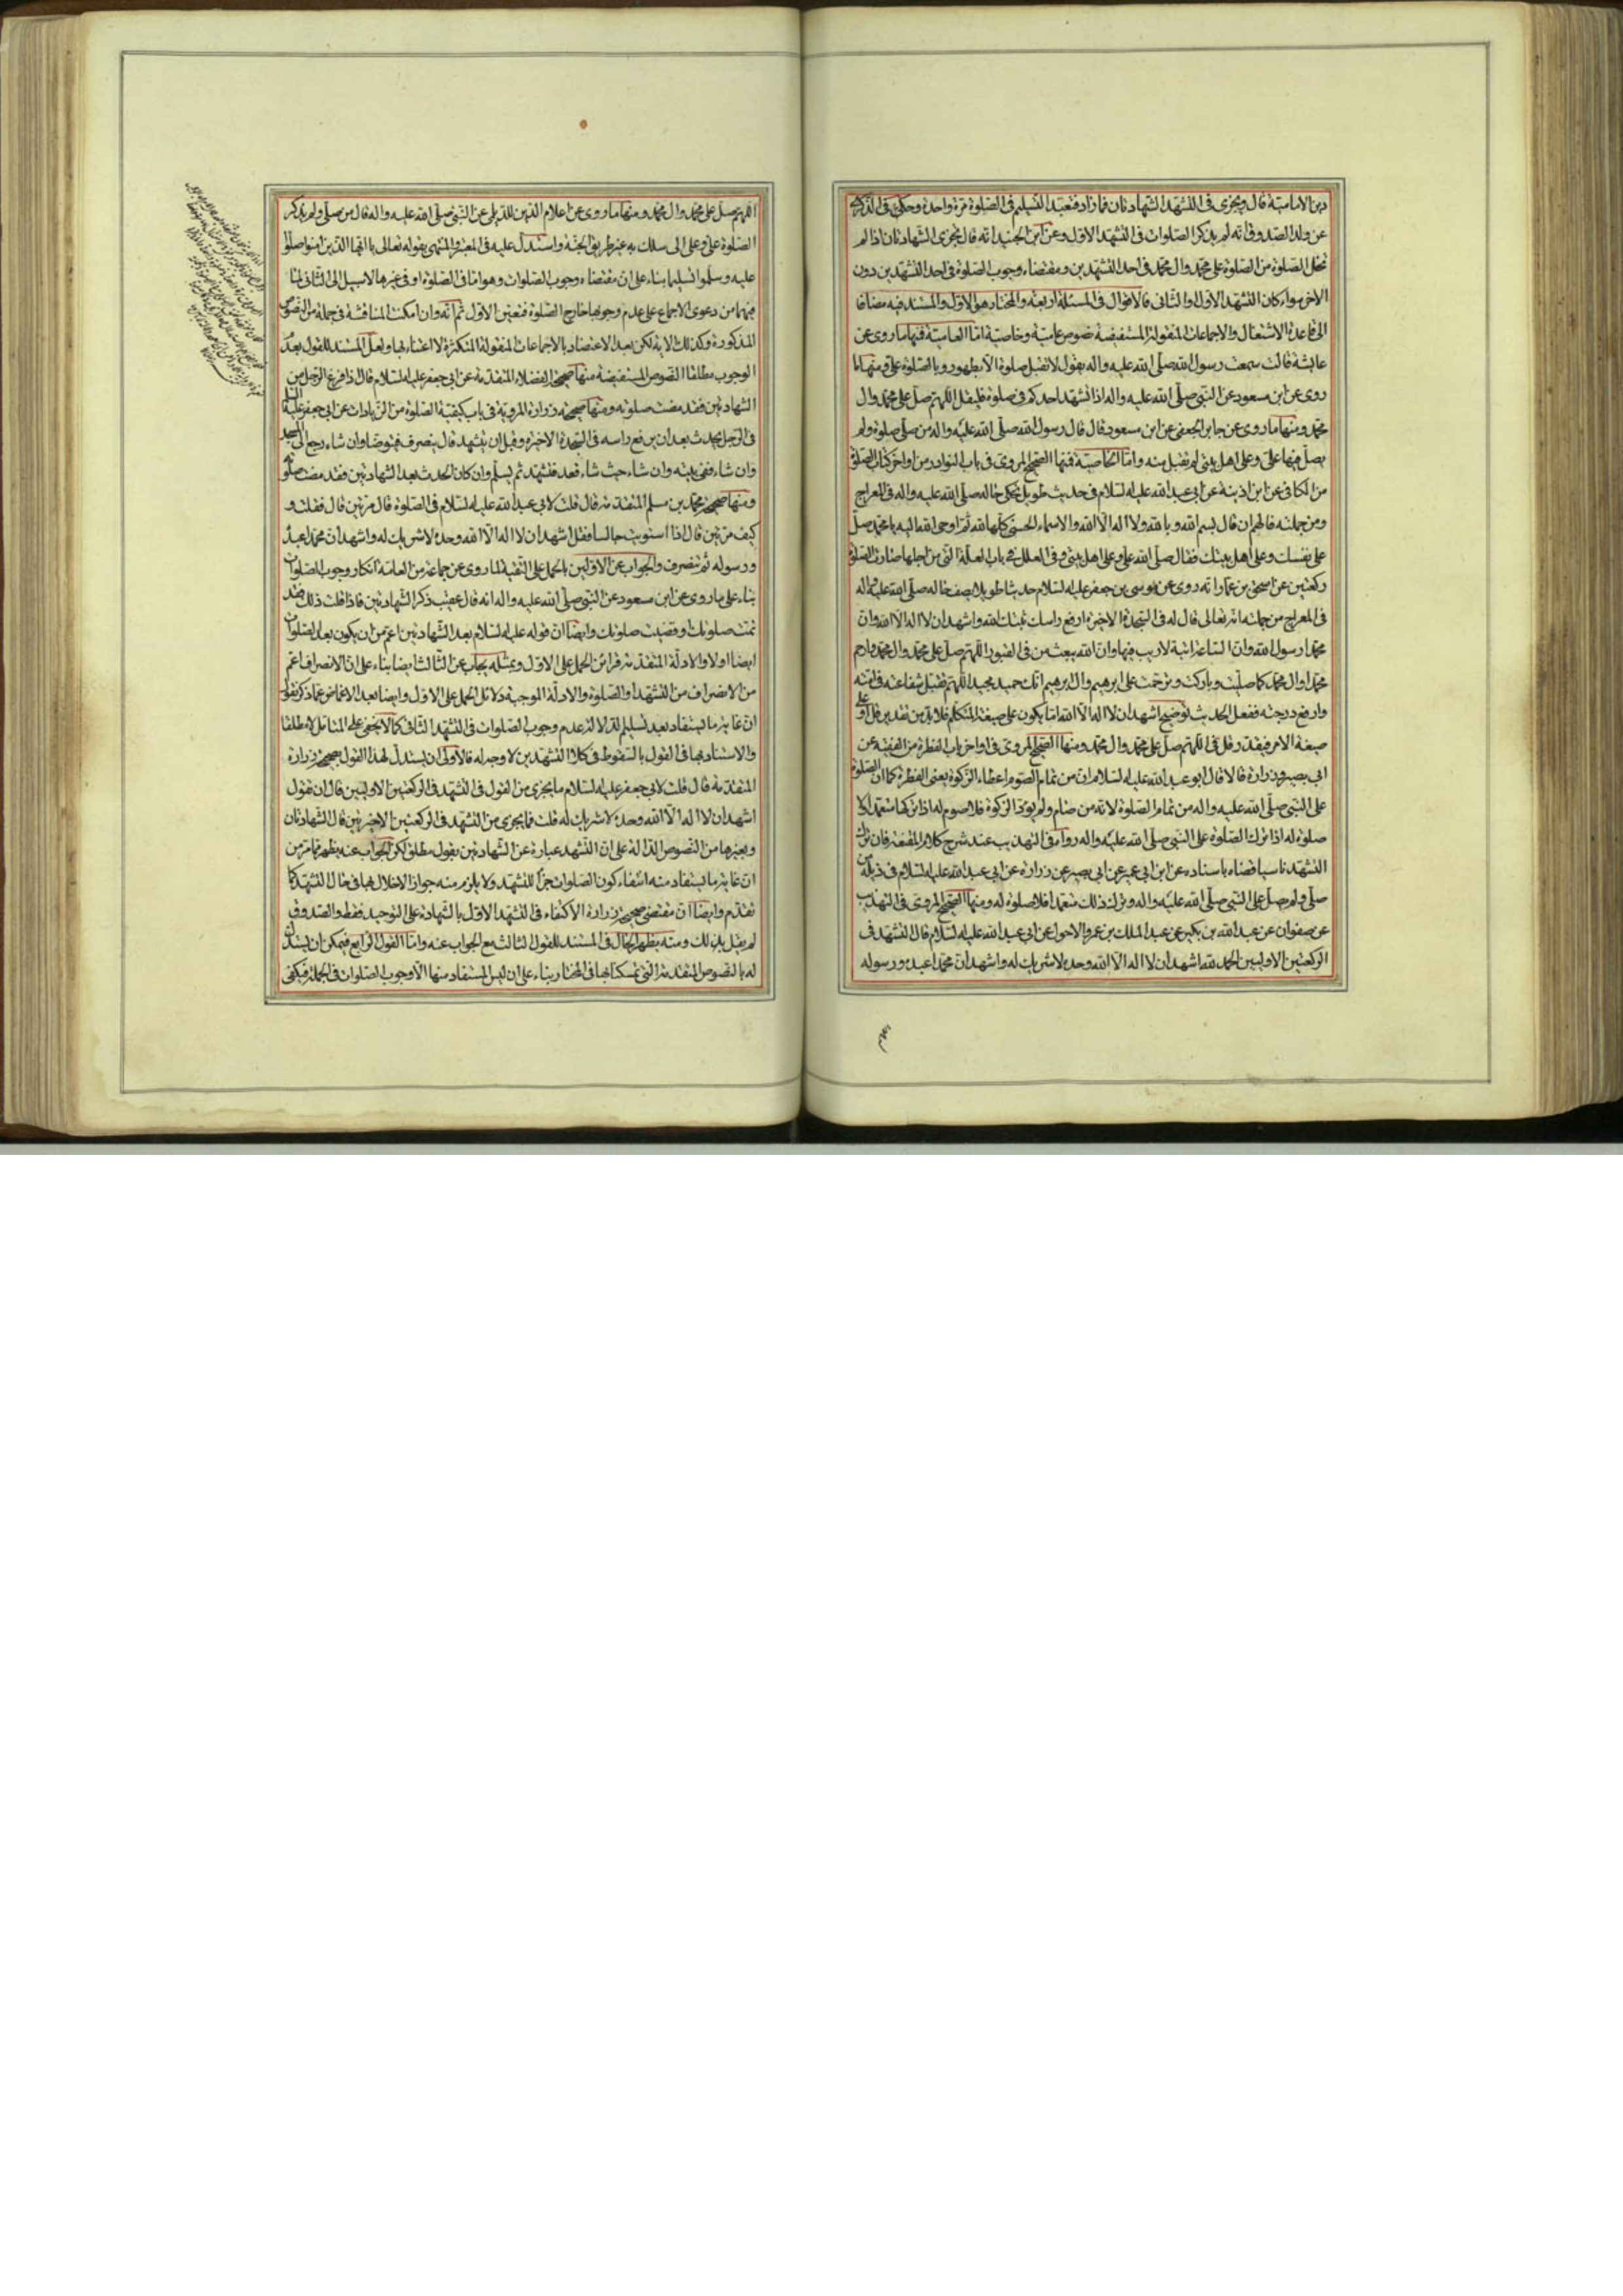 دين الامامية قال ويجزى فى التشهد الشهادتان فما زاد فتعبد التسليم فى الصلوة مرة واحدة وحكى فى الذكرى
عن والد الصدوق انه لم يذكر الصلوات فى التشهد الاول وعن ابن الجنيد انه قال تجزى الشهادتان اذا لم
تخل الصلوة من الصلوة على محمد وال محمد فى احد التشهدين ومقتضاه وجوب الصلوة فى احد التشهدين دون
الاخر سواء كان التشهد الاول او الثانى فالاقوال فى المسئلة اربعة والمختار هو الاول والمستند فيه مضافا
الى قاعدة الاشتغال والاجماعات المنقولة المستفيضة نصوص عامية وخاصية اما العامية فمنها ما روى عن
عايشة قالت سمعت رسول الله صلى الله عليه واله يقول لا تقبل صلوة الا بطهور وبالصلوة على ومنها ما
روى عن ابن مسعود عن النبى صلى الله عليه واله اذا تشهد احدكم فى صلوة فليقل اللهم صل على محمد وال
محمد ومنها ما روى عن جابر الجعفى عن ابن مسعود قال قال رسول الله صلى الله عليه واله من صلى صلوة ولم
يصل فيها على وعلى اهل بيتى لم تقبل منه واما الخاصية فمنها الصحيح المروى فى باب النوادر من اواخر كتاب الصلوة
من الكافى عن ابن اذينة عن ابى عبد الله عليه السلام فى حديث طويل يحكى حاله صلى الله عليه واله فى المعراج
ومن جملته فالهم ان قال بسم الله وبالله ولا اله الا الله والاسماء الحسنى كلها لله ثم اوحى الله اليه يا محمد صل
على نفسك وعلى اهل بيتك فقال صلى الله على وعلى اهل بيتى وفى العلل فى باب العلة التى من اجلها صارت الصلوة
ركعتين عن اسحق بن عمار انه روى عن موسى بن جعفر عليه السلام حديثا طويلا يصف حاله صلى الله عليه واله
فى المعراج من جملته انه تعالى قال له فى السجدة الاخيرة ارفع راسك ثبتك الله واشهد ان لا اله الا الله وان
محمدا رسول الله وان الساعة اتية لا ريب فيها وان الله يبعث من فى القبور اللهم صل على محمد وال محمد وارحم
محمدا وال محمد كما صليت وباركت وترحمت على ابرهيم وال ابرهيم انك حميد مجيد اللهم تقبل شفاعته فى امته
وارفع درجته ففعل الحديث توضيح اشهد ان لا اله الا الله اما يكون على صيغة المتكلم فلا بد من تقدير قل او على
صيغة الامر فيقدر قل فى اللهم صل على محمد وال محمد ومنها الصحيح المروى فى اواخر باب الفطرة من الفقيه عن
ابى بصير وزرارة قالا قال ابو عبد الله عليه السلام ان من تمام الصوم اعطاء الزكوة يعنى الفطرة كما ان الصلوة
على النبى صلى الله عليه واله من تمام الصلوة لانه من صام ولم يؤد الزكوة فلا صوم له اذا تركها متعمدا ولا
صلوة له اذا ترك الصلوة على النبى صلى الله عليه واله رواه فى التهذيب عند شرح كلام المقنعة فان ترك
التشهد ناسيا قضاه باسناده عن ابن ابى عمير عن ابى بصير عن زرارة عن ابى عبد الله عليه السلام فى ذيله من
صلى ولم يصل على النبى صلى الله عليه واله وترك ذلك متعمدا فلا صلوة له ومنها الصحيح المروى فى التهذيب
عن صفوان عن عبد الله بن بكير عن عبد الملك بن عمرو الاحول عن ابى عبد الله عليه السلام قال التشهد فى
الركعتين الاوليين الحمد لله اشهد ان لا اله الا الله وحده لا شريك له واشهد ان محمدا عبده ورسوله
اللهم صل على محمد وال محمد ومنها ما روى عن اعلام الدين للديلمى عن النبى صلى الله عليه واله قال من صلى ولم يذكر
الصلوة على وعلى الى سلك به غير طريق الجنة واستدل عليه فى المعتبر والمنتهى بقوله تعالى يا ايها الذين امنوا صلوا
عليه وسلموا تسليما بناء على ان مقتضاه وجوب الصلوات وهو اما فى الصلوة او فى غيرها لا سبيل الى الثانى لما
فيهما من دعوى الاجماع على عدم وجوبها خارج الصلوة فتعين الاول ثم انه وان امكنت المناقشة فى جملة من النصوص
المذكورة وكذلك الاية لكن بعد الاعتضاد بالاجماعات المنقولة المتكثرة لا اعتناء بها ولعل المستند للقول بعدم
الوجوب مطلقا النصوص المستفيضة منها صحيح الفضلاء المتقدمة عن ابى جعفر عليه السلام قال اذا فرغ الرجل من
الشهادتين فقد مضت صلوته ومنها صحيحة زرارة المروية فى باب كيفية الصلوة من الزيادات عن ابى جعفر عليه السلام
فى الرجل يحدث بعد ان يرفع راسه فى السجدة الاخيرة وقبل ان يتشهد قال ينصرف فيتوضا وان شاء رجع الى المسجد
وان شاء ففى بيته وان شاء حيث شاء قعد فتشهد ثم يسلم وان كان الحدث بعد الشهادتين فقد مضت صلوته
ومنها صحيحة محمد بن مسلم المتقدمة قال قلت لابى عبد الله عليه السلام فى الصلوة قال مرتين قال فقلت و
كيف مرتين قال اذا استويت جالسا فقل اشهد ان لا اله الا الله وحده لا شريك له واشهد ان محمدا عبده
ورسوله ثم تنصرف والجواب عن الاولين بالحمل على التقية لما روى عن جماعة من العامة انكار وجوب الصلوات
بناء على ما روى عن ابن مسعود عن النبى صلى الله عليه واله انه قال عقيب ذكر الشهادتين فاذا قلت ذلك فقد
تمت صلوتك او قضيت صلوتك وايضا ان قوله عليه السلام بعد الشهادتين اعم من ان يكون بعد الصلوات
ايضا او لا والادلة المتقدمة قرائن الحمل على الاول وبمثله يجاب عن الثالث ايضا بناء على ان الانصراف اعم
من الانصراف من التشهد او الصلوة والادلة الموجبة دلائل الحمل على الاول وايضا بعد الاغماض عما ذكر نقول
ان غاية ما يستفاد بعد تسليم الدلالة عدم وجوب الصلوات فى التشهد الثانى كما لا يخفى على المتامل لا مطلقا
والاستناد بها فى القول بالسقوط فى كلا التشهدين لا وجه له فالاولى ان يستدل لهذا القول بصحيحة زرارة
المتقدمة قال قلت لابى جعفر عليه السلام ما يجزى من القول فى التشهد فى الركعتين الاوليين قال ان تقول
اشهد ان لا اله الا الله وحده لا شريك له قلت فما يجزى من التشهد فى الركعتين الاخيرتين قال الشهادتان
وبغيرها من النصوص الدالة على ان التشهد عبارة عن الشهادتين بقول مطلق لكن الجواب عنه يظهر مما مر من
ان غاية ما يستفاد منه انتفاء كون الصلوات جزأ للتشهد ولا يلزم منه جواز الاخلال بها فى حال التشهد كما
تقدم وايضا ان مقتضى صحيحة زرارة الاكتفاء فى التشهد الاول بالشهادة على التوحيد فقط والصدوق
لم يقل بذلك ومنه يظهر الحال فى المستند للقول الثالث مع الجواب عنه واما القول الرابع فيمكن ان يستدل
له بالنصوص المتقدمة التى تمسكنا بها فى المختار بناء على ان ليس المستفاد منها الا وجوب الصلوات فى الجملة فيكفى